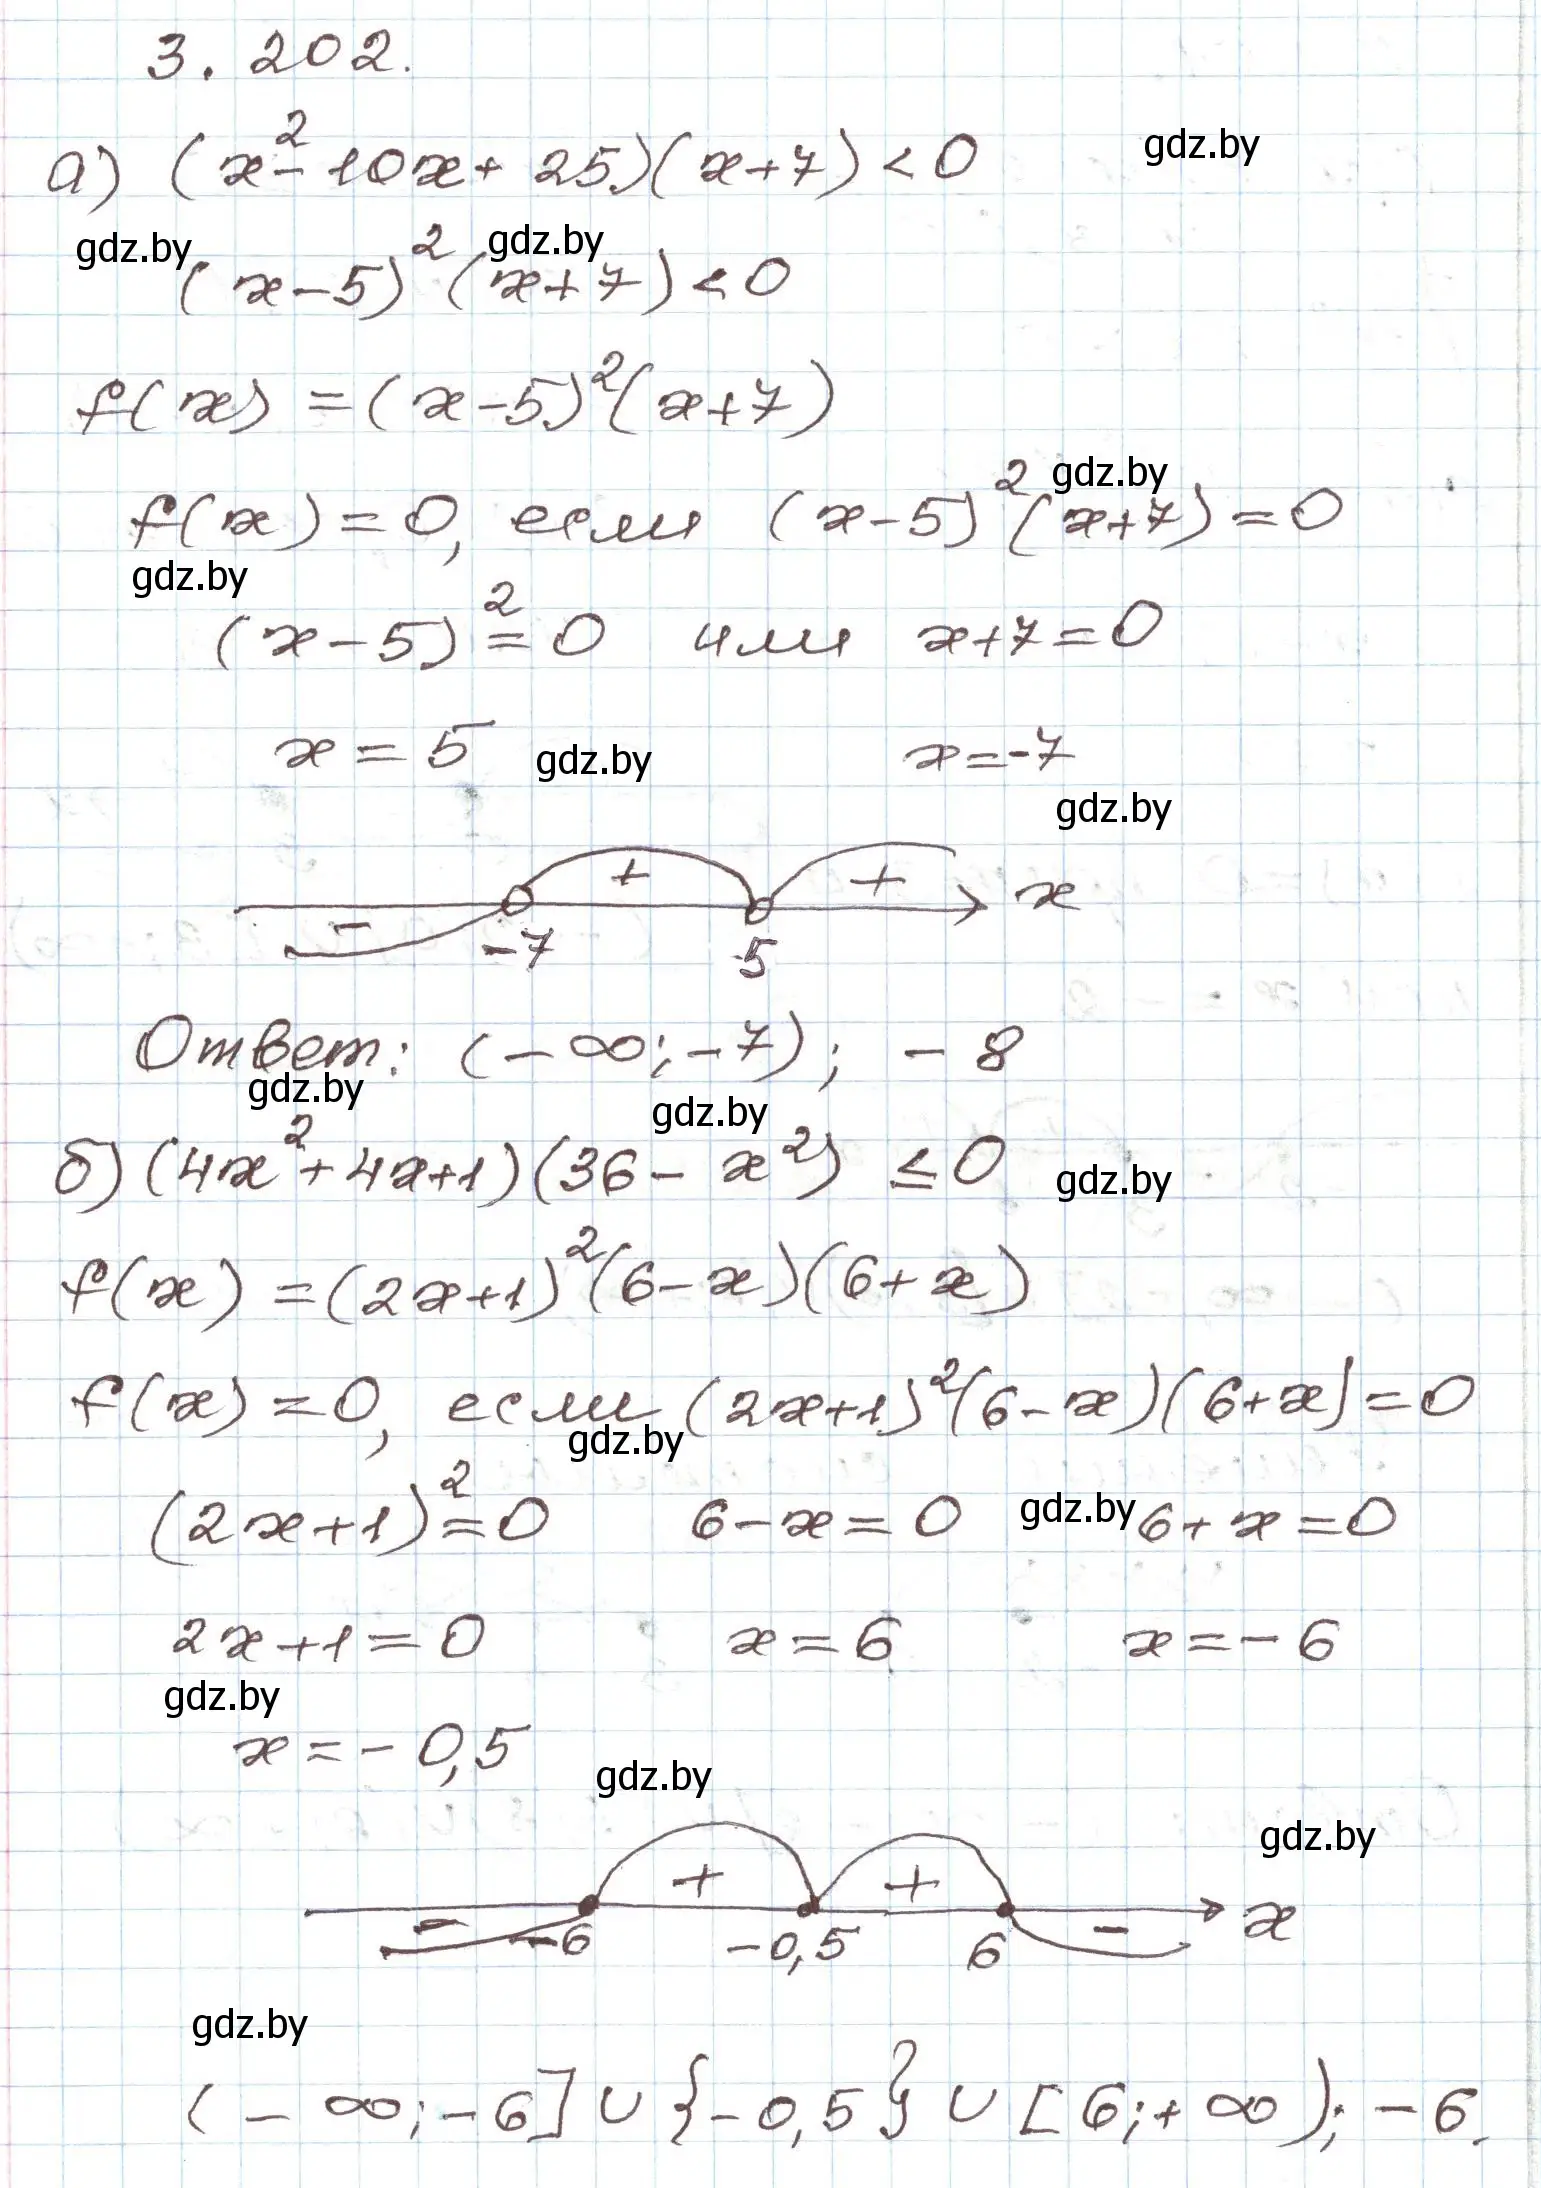 3.202.
а) (x² - 10x + 25)(x+7) < 0
gdz.by
gdz.by gdz.by
(x-5)²(x+7) < 0
f(x) = (x-5)²(x+7)
gdz.by
f(x) = 0, если (x-5)²(x+7) = 0
gdz.by
(x-5)² = 0 или x+7 = 0
x = 5 gdz.by x = -7
gdz.by
+ + x
- -7 5
Ответ: (-∞; -7); -8
gdz.by gdz.by
б) (4x² + 4x + 1)(36 - x²) ≤ 0 gdz.by
f(x) = (2x+1)²(6-x)(6+x)
f(x) = 0, если (2x+1)²(6-x)(6+x) = 0
gdz.by
(2x+1)² = 0 6-x = 0 gdz.by 6+x = 0
2x+1 = 0 x = 6 x = -6
gdz.by
x = -0,5
gdz.by
gdz.by
+ + x
- -6 -0,5 6 -
gdz.by
(-∞; -6] ∪ {-0,5} ∪ [6; +∞); -6.